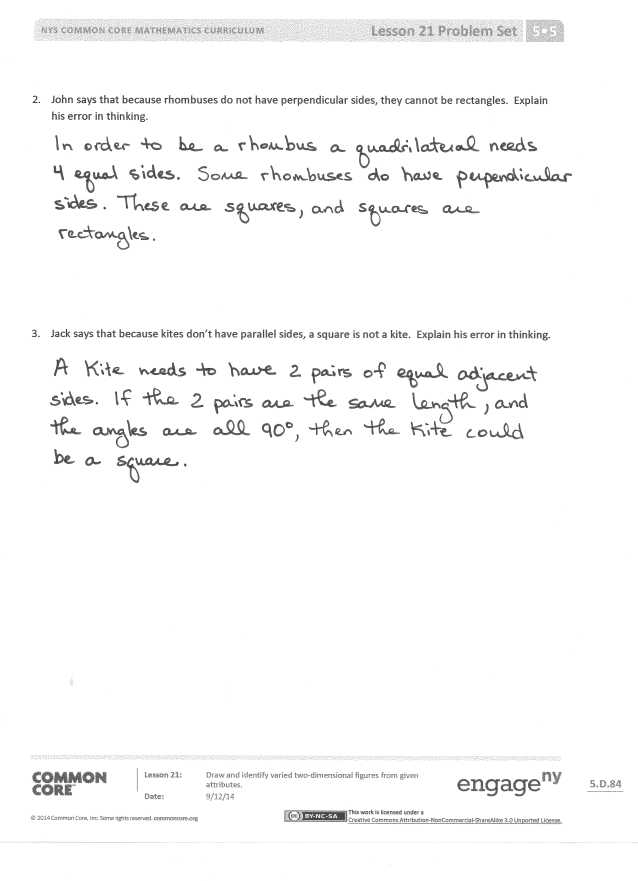 NYS COMMON CORE MATHEMATICS CURRICULUM
Lesson 21 Problem Set 5•5
2. John says that because rhombuses do not have perpendicular sides, they cannot be rectangles. Explain
his error in thinking.
In order to be a rhombus a quadrilateral needs
4 equal sides. Some rhombuses do have perpendicular
sides. These are squares, and squares are
rectangles.
3. Jack says that because kites don't have parallel sides, a square is not a kite. Explain his error in thinking.
A Kite needs to have 2 pairs of equal adjacent
sides. If the 2 pairs are the same length, and
the angles are all 90°, then the Kite could
be a square.
COMMON
CORE™
Lesson 21: Draw and identify varied two-dimensional figures from given
attributes.
Date: 9/12/14
engageny
5.D.84
© 2014 Common Core, Inc. Some rights reserved. commoncore.org
cc BY-NC-SA
This work is licensed under a
Creative Commons Attribution-NonCommercial-ShareAlike 3.0 Unported License.